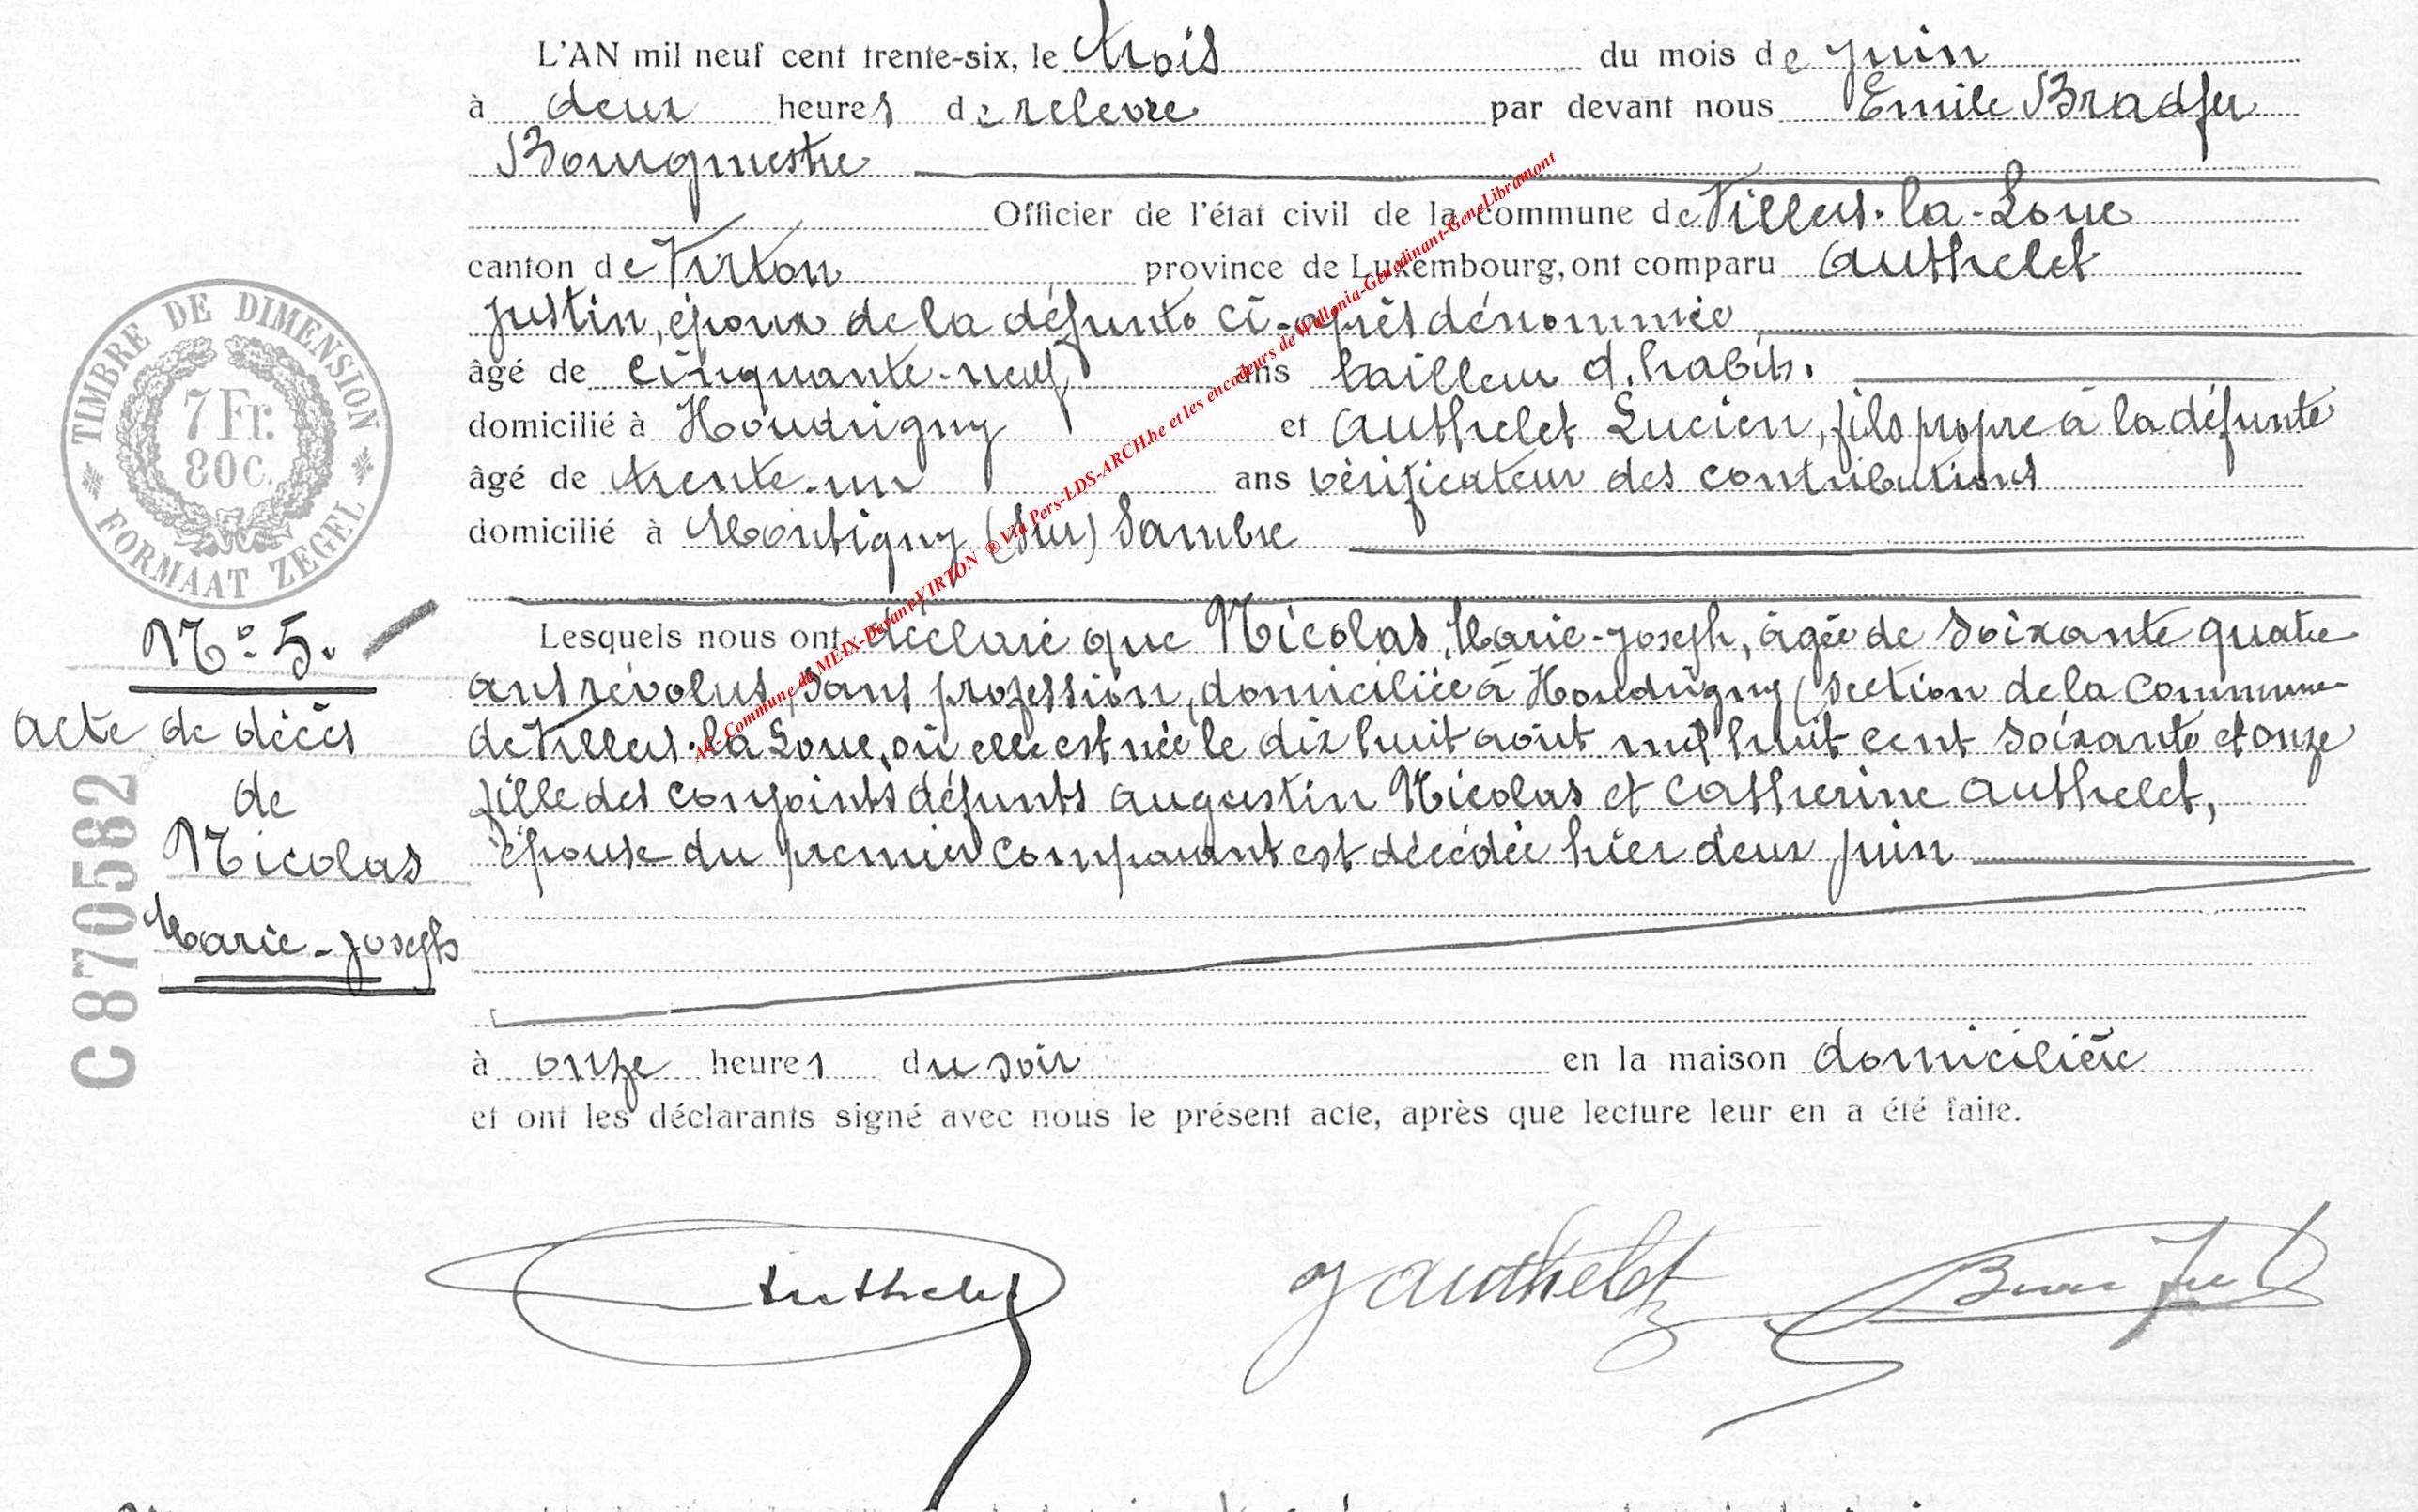 L'AN mil neuf cent trente-six, le trois du mois de juin
à deux heures de relevée par devant nous Emile Bradfer
Bourgmestre
Officier de l'état civil de la commune de Villers-la-Loue
canton de Virton province de Luxembourg, ont comparu Authelet
Justin, époux de la défunte ci-après dénommée
âgé de cinquante-neuf ans tailleur d'habits.
domicilié à Houdrigny et Authelet Lucien, fils propre à la défunte
âgé de trente-un ans vérificateur des contributions
domicilié à Montigny (sur) Sambre
Lesquels nous ont déclaré que Nicolas, Marie-Joseph, âgée de soixante quatre
ans révolus, sans profession, domiciliée à Houdrigny (section de la commune
de Villers-la-Loue, où elle est née le dix huit août mil huit cent soixante et onze
fille des conjoints défunts Augustin Nicolas et Catherine Authelet,
épouse du premier comparant est décédée hier deux juin
à onze heures du soir en la maison domicilière
et ont les déclarants signé avec nous le présent acte, après que lecture leur en a été faite.
Authelet J Authelet Bradfer
TIMBRE DE DIMENSION
7 Fr.
80 C.
FORMAAT ZEGEL
N° 5.
Acte de décès
de
Nicolas
Marie-Joseph
C870582
AC-Commune de MEIX-Devant-VIRTON ® Via Pers-LDS-ARCH.be et les encodeurs de Wallonia-Genedinant-GeneLibramont